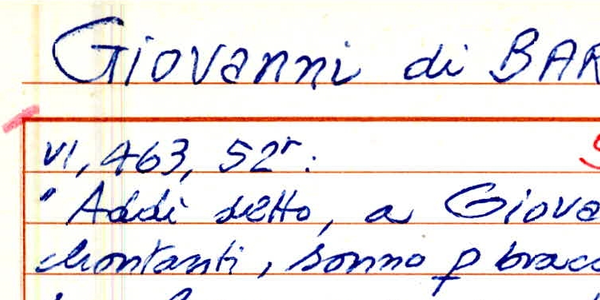 Giovanni di BAR
VI, 463, 52r:
"Addì detto, a Giova
montanti, sonno p bracc